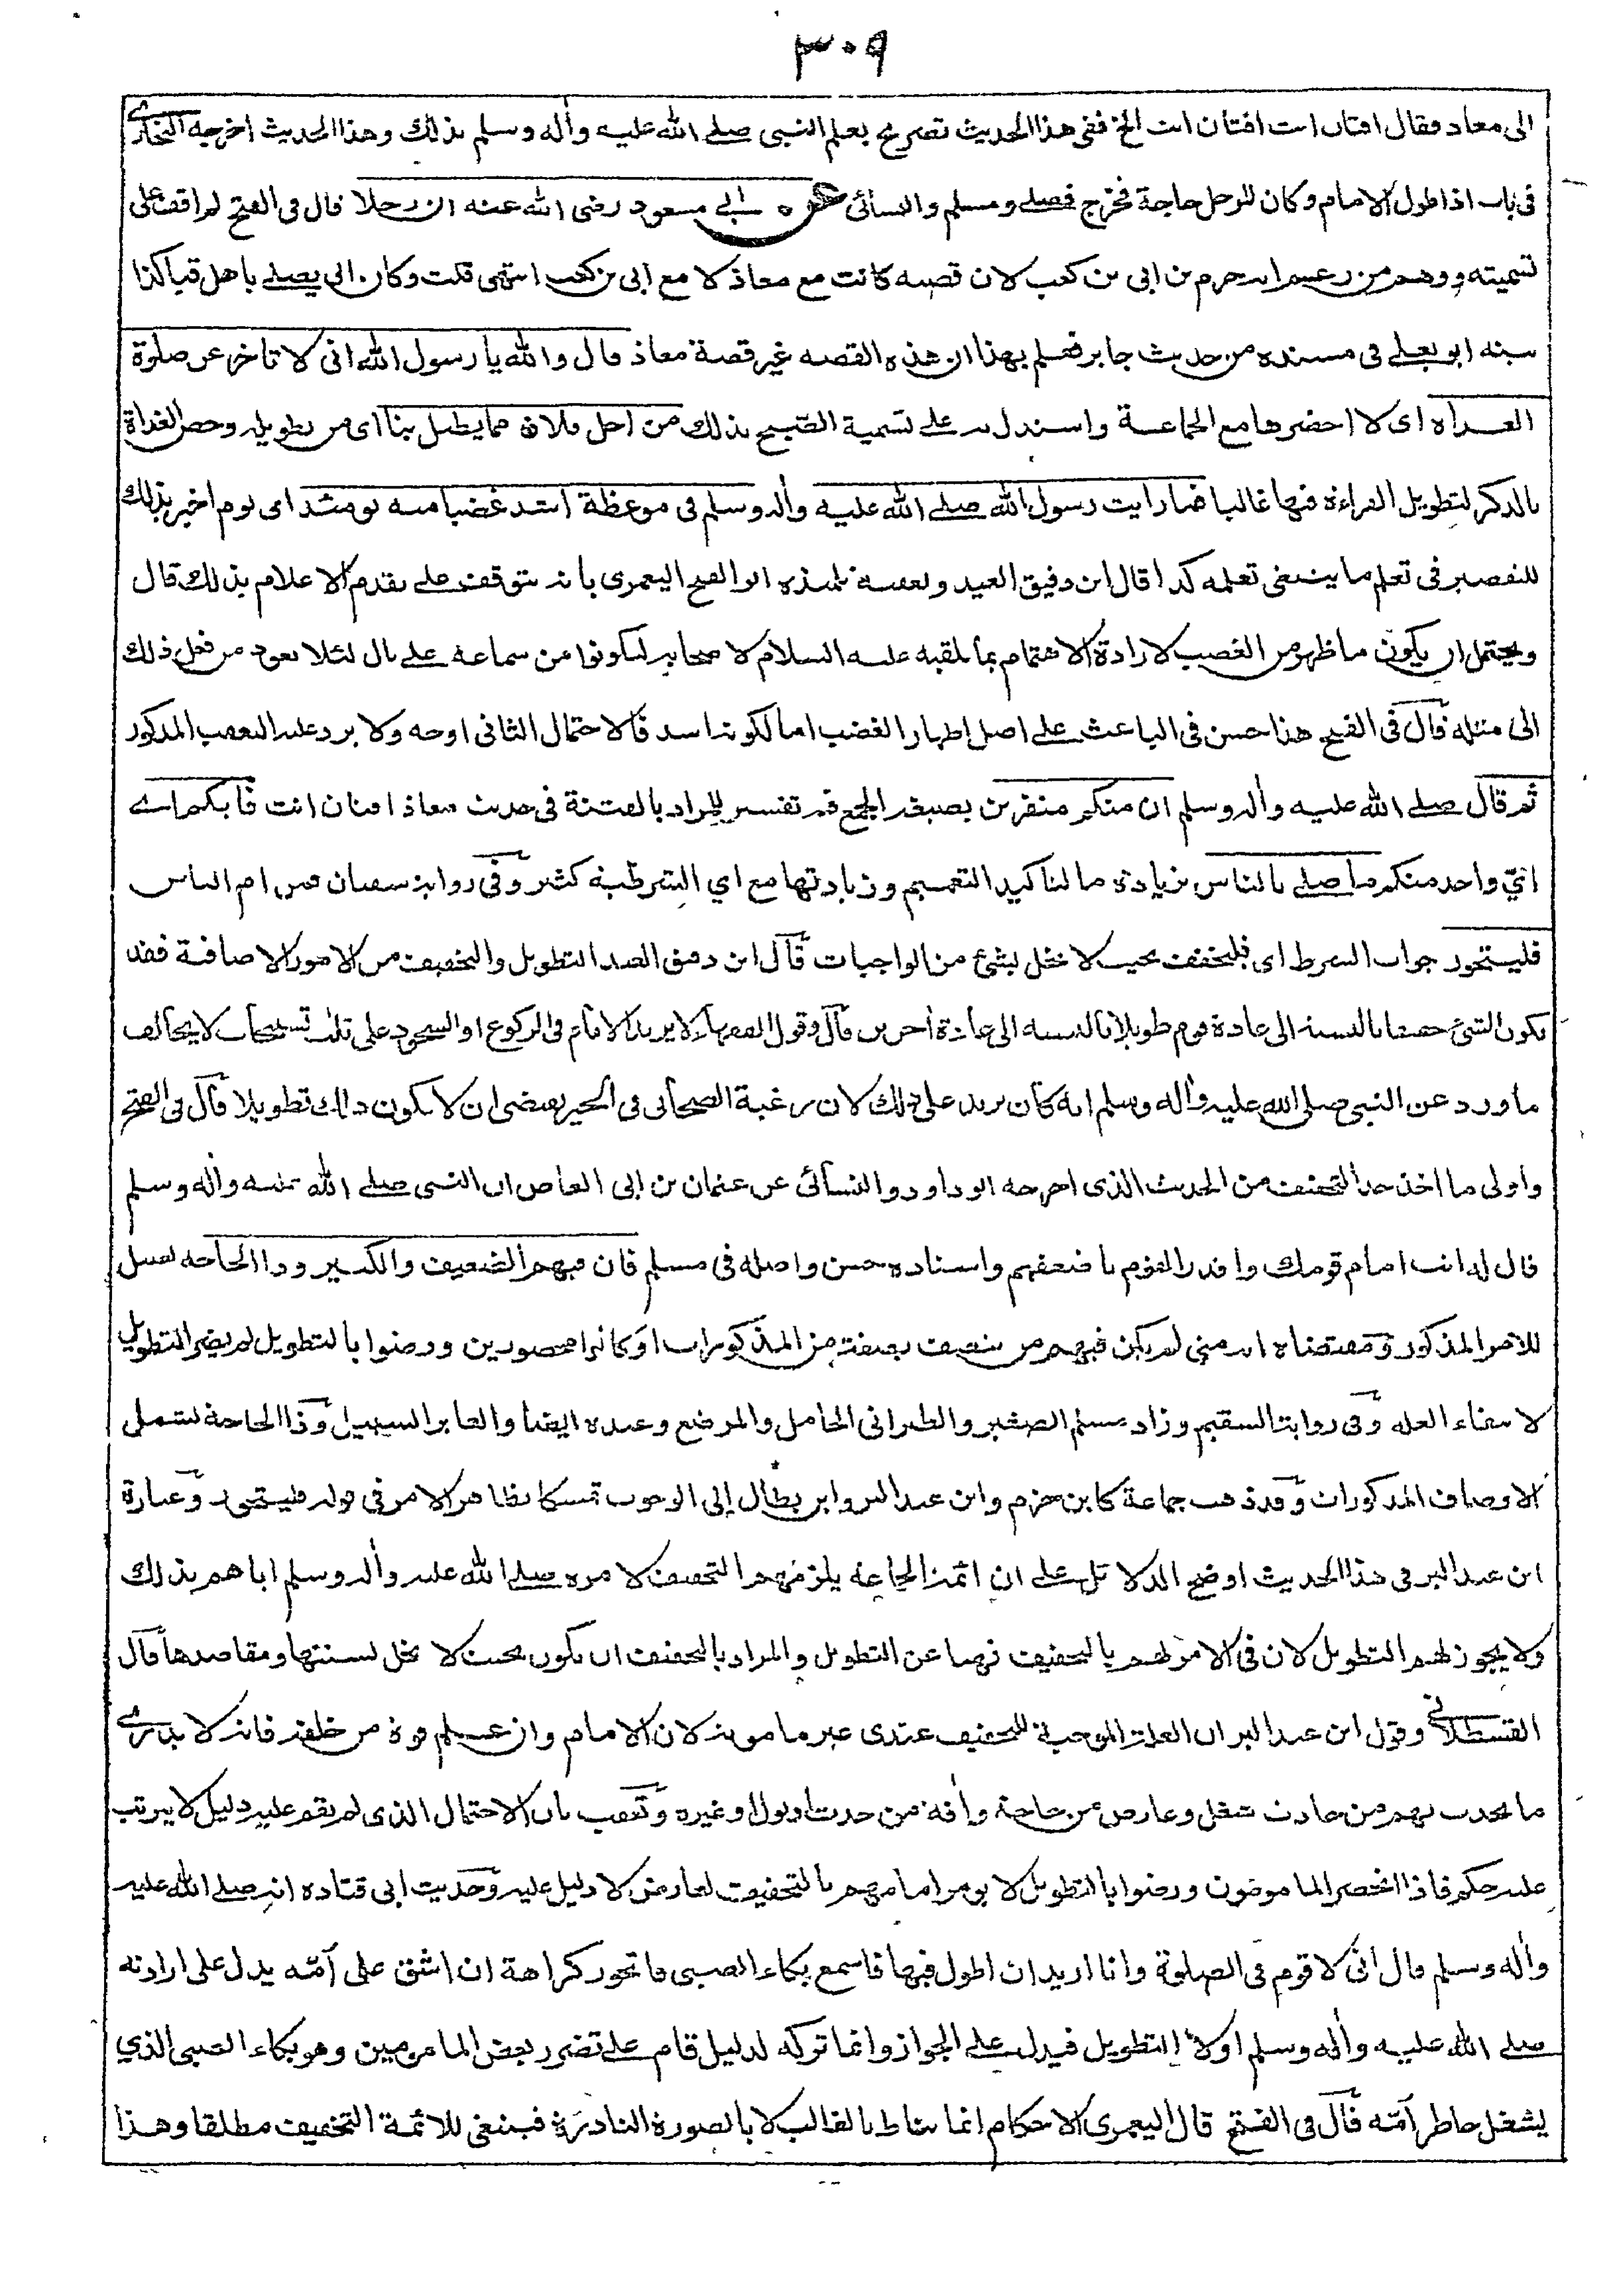 ٣٠٩
الى معاذ فقال افتان انت افتان انت الخ ففى هذا الحديث تصريح بعلم النبى صلے الله عليه وأله وسلم بذلك وهذا الحديث اخرجه البخارى
فى باب اذا طول الامام وكان للرجل حاجة فخرج فصلے ومسلم والنسائى عن ابى مسعود رضى الله عنه ان رجلا قال فى الفتح لم اقف على
تسميته ووهم من زعم انه حزم بن ابى بن كعب لان قصته كانت مع معاذ لا مع ابى بن كعب انتهى قلت وكان ابى يصلے باهل قبا كذا
بينه ابو يعلے فى مسنده من حديث جابر فعلم بهذا ان هذه القصه غير قصة معاذ قال والله يا رسول الله انى لا تاخر عن صلوة
الغداة اى لا احضرها مع الجماعة واستدل به على تسمية الصبح بذلك من اجل فلان مما يطيل بنا اى من تطويله وخص الغداة
بالذكر لتطويل القراءة فيها غالبا فما رايت رسول الله صلے الله عليه وأله وسلم فى موعظة اشد غضبا منه يومئذ اى يوم اخبر بذلك
للتقصير فى تعلم ما ينبغى تعلمه كذا قال ابن دقيق العيد وتعقبه تلميذه ابو الفتح اليعمرى بانه يتوقف على تقدم الاعلام بذلك قال
ويحتمل ان يكون ما ظهر من الغضب لارادة الاهتمام بما يلقيه عليه السلام لاصحابه ليكونوا من سماعه على بال لئلا يعود من فعل ذلك
الى مثله قال فى الفتح هذا حسن فى الباعث على اصل اظهار الغضب اما لكونه اشد فالاحتمال الثانى اوجه ولا يرد عليه التعقب المذكور
ثم قال صلے الله عليه وأله وسلم ان منكم منفرين بصيغة الجمع فيه تفسير للمراد بالفتنة فى حديث معاذ افتان انت فايكم اے
اىّ واحد منكم ما صلے بالناس بزيادة ما لتاكيد التعميم وزيادتها مع اى الشرطية كثير وفى رواية سفيان فمن ام الناس
فليتجوز جواب الشرط اى فليخفف بحيث لا يخل بشئ من الواجبات قال ابن دقيق العيد التطويل والتخفيف من الامور الاضافية فقد
يكون الشئ خفيفا بالنسبة الى عادة قوم طويلا بالنسبة الى عادة أخرين قال وقول الفقهاء لا يزيد الامام فى الركوع او السجود على ثلث تسبيحات لا يخالف
ما ورد عن النبى صلى الله عليه وأله وسلم انه كان يزيد على ذلك لان رغبة الصحابى فى الخير يقتضى ان لا يكون ذلك تطويلا قال فى الفتح
وأولى ما اخذ حد التخفيف من الحديث الذى اخرجه ابو داود والنسائى عن عثمان بن ابى العاص ان النبى صلے الله عليه وأله وسلم
قال له انت امام قومك واقدر القوم باضعفهم واسناده حسن واصله فى مسلم فان فيهم الضعيف والكبير وذا الحاجه تعليل
للامر المذكور ومقتضاه انه متى لم يكن فيهم من يتصف بصفة من المذكورات او كانوا محصورين ورضوا بالتطويل لم يضر التطويل
لانتفاء العله وفى رواية السقيم وزاد مسلم الصغير والطبرانى الحامل والمرضع وعنده ايضا والعابر السبيل وذا الحاجة تشمل
الاوصاف المذكورات وقد ذهب جماعة كابن حزم وابن عبد البر وابن بطال إلى الوجوب تمسكا بظاهر الامر فى قوله فليتجوز وعبارة
ابن عبد البر فى هذا الحديث اوضح الدلائل على ان ائمة الجماعة يلزمهم التخفيف لامره صلے الله عليه وأله وسلم اياهم بذلك
ولا يجوز لهم التطويل لان فى الامر لهم بالتخفيف نهيا عن التطويل والمراد بالتخفيف ان يكون بحيث لا يخل بسنتها ومقاصدها قال
القسطلانى وقول ابن عبد البر ان العلة الموجبة للتخفيف عندى غير مامونة لان الامام وان علم قوة من خلفه فانه لا يدرى
ما يحدث بهم من حادث شغل وعارض من حاجة وأفة من حدث او بول او غيره وتعقب بان الاحتمال الذى لم يقم عليه دليل لا يترتب
عليه حكم فاذا انحصر المامومون ورضوا بالتطويل لا يومر امامهم بالتخفيف لعارض لا دليل عليه وحديث ابى قتاده انه صلے الله عليه
وأله وسلم قال انى لاقوم فى الصلوة وانا اريد ان اطول فيها فاسمع بكاء الصبى فاتجوز كراهة ان اشق على أمّه يدل على ارادته
صلے الله عليه وأله وسلم اولا التطويل فيدل على الجواز وانما تركه لدليل قام على تضرر بعض المامومين وهو بكاء الصبى الذي
يشغل خاطر أمّه قال فى الفتح قال اليعمرى الاحكام انما تناط بالغالب لا بالصورة النادرة فينبغى للائمة التخفيف مطلقا وهذا